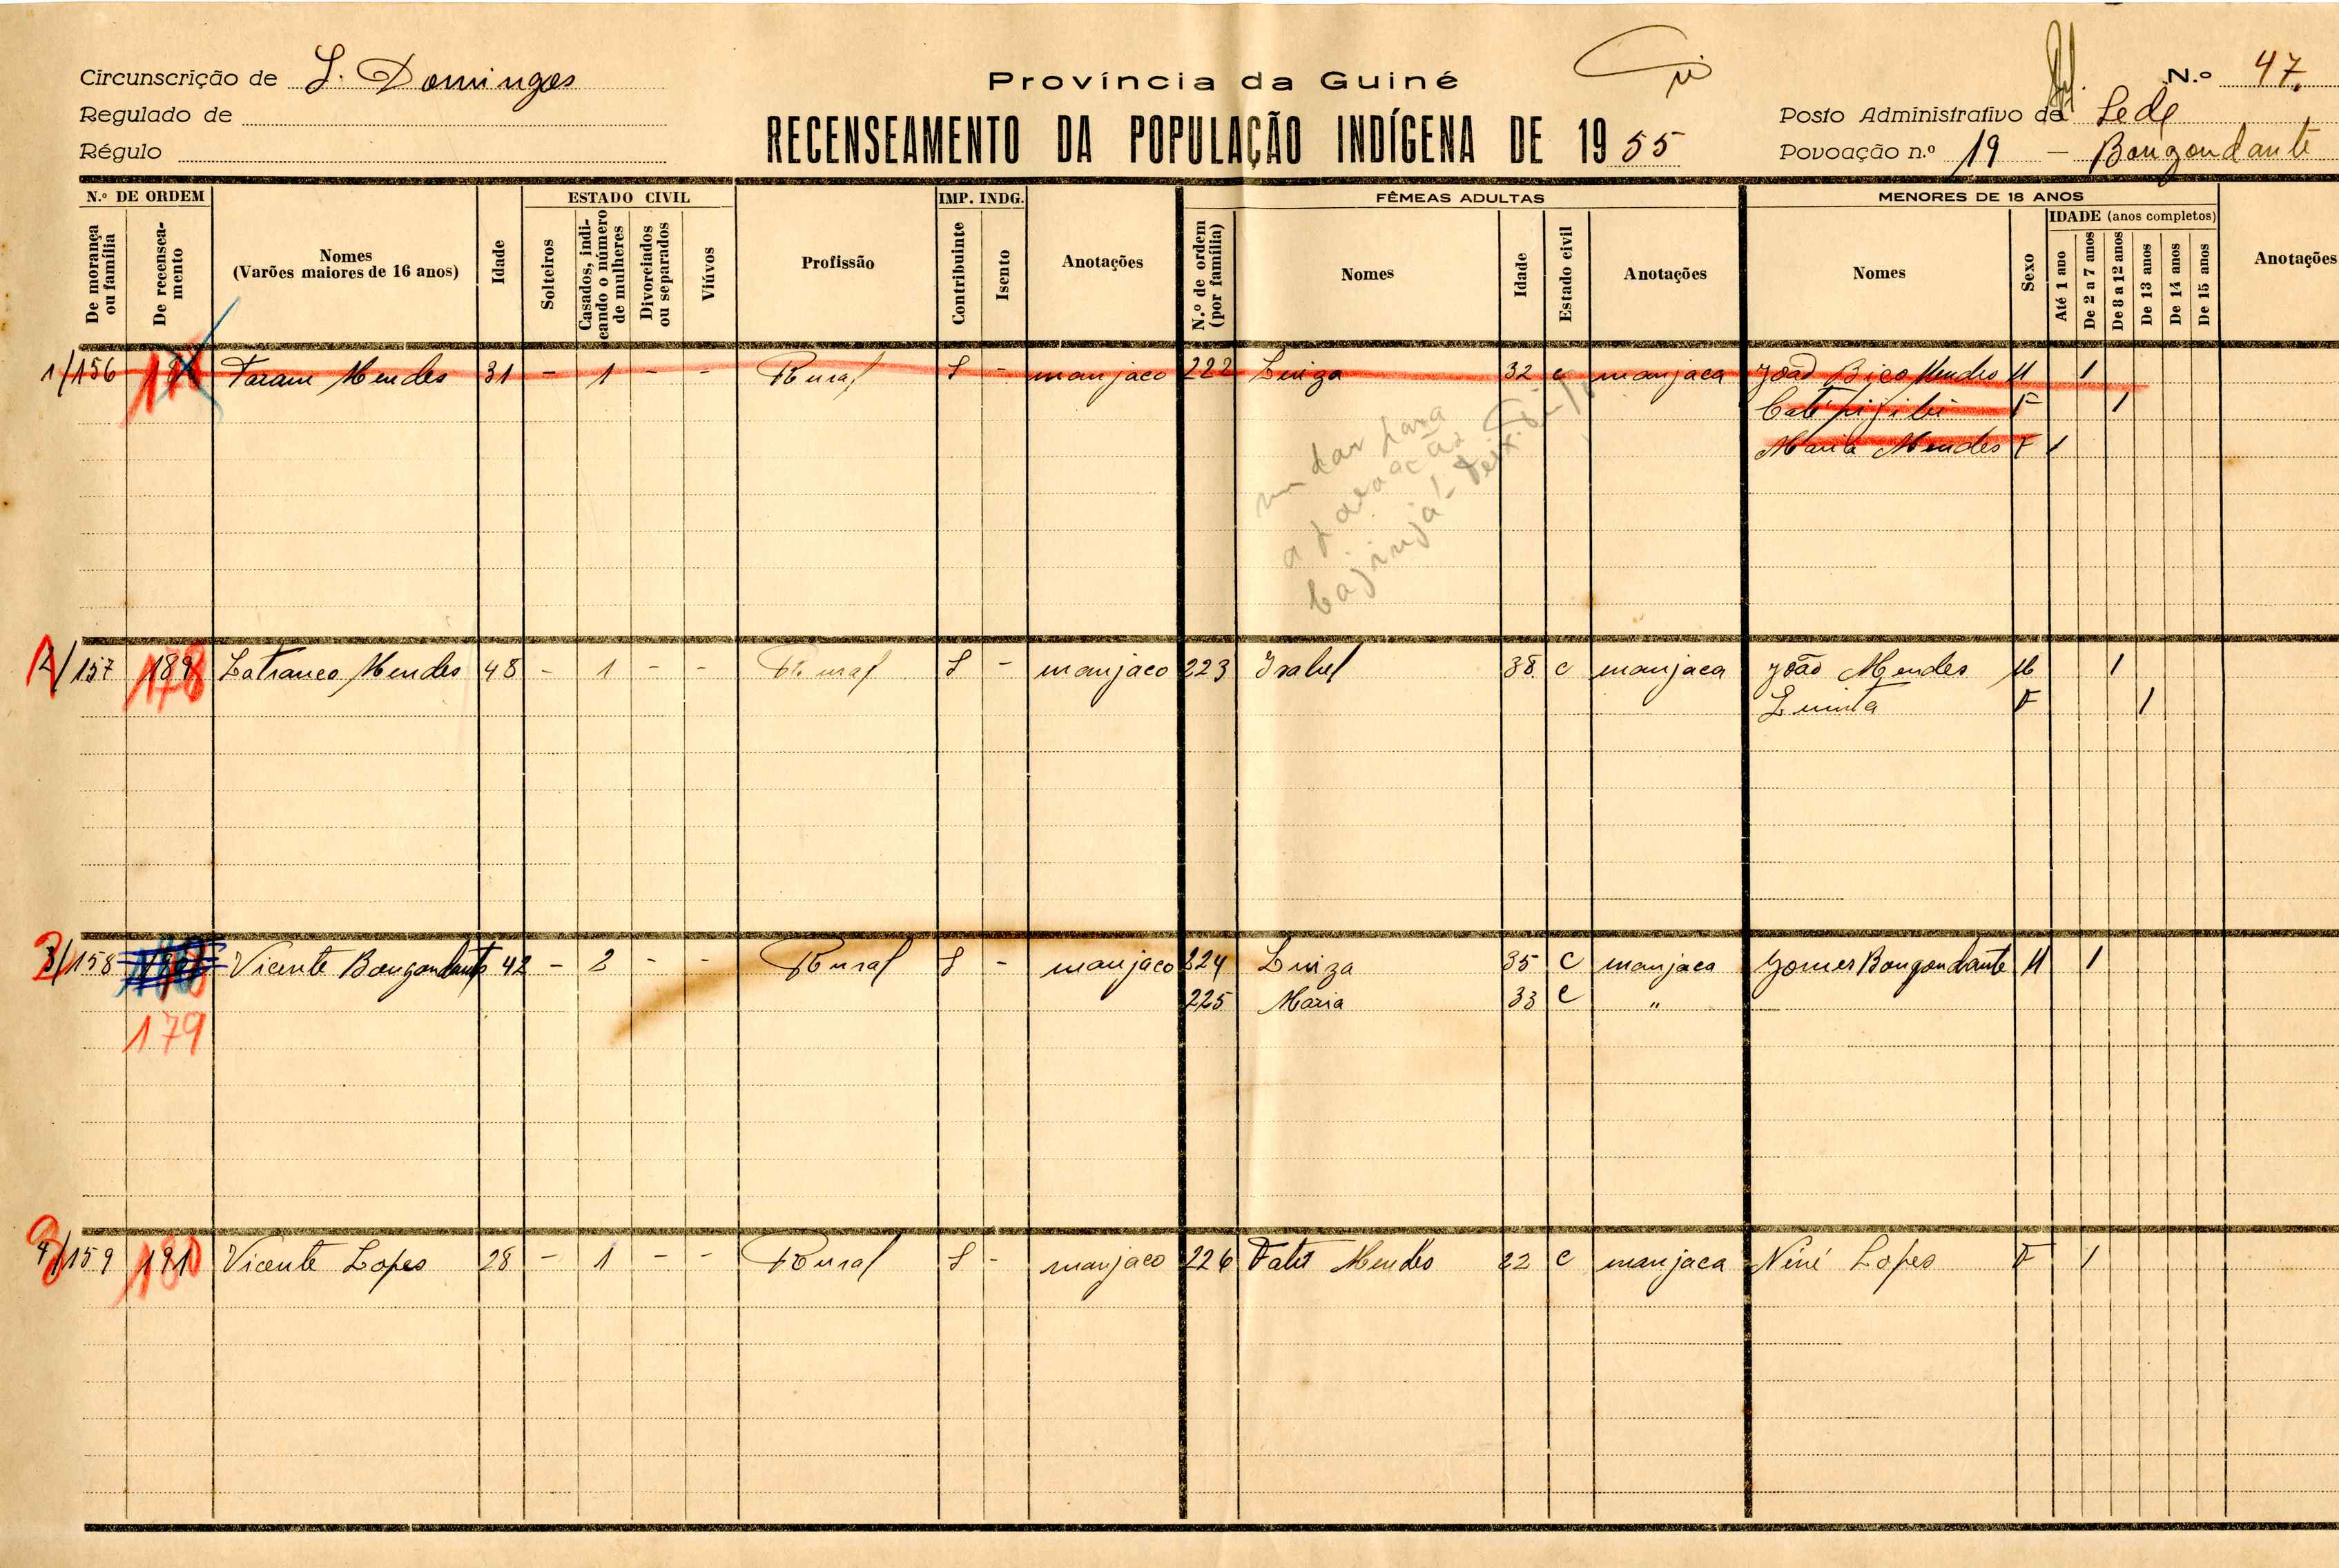 Circunscrição de S. Domingos
Regulado de
Régulo
Província da Guiné
RECENSEAMENTO DA POPULAÇÃO INDÍGENA DE 1955
N.º 47.
Posto Administrativo de Sede
Povoação n.º 19 — Bougondante
N.º DE ORDEM
De morança ou família
De recenseamento
Nomes
(Varões maiores de 16 anos)
Idade
ESTADO CIVIL
Solteiros
Casados, indicando o número de mulheres
Divorciados ou separados
Viúvos
Profissão
IMP. INDG.
Contribuinte
Isento
Anotações
FÊMEAS ADULTAS
N.º de ordem (por família)
Nomes
Idade
Estado civil
Anotações
MENORES DE 18 ANOS
Nomes
Sexo
IDADE (anos completos)
Até 1 ano
De 2 a 7 anos
De 8 a 12 anos
De 13 anos
De 14 anos
De 15 anos
Anotações
1/156 Mendes 31 - 1 - - Rural S - manjaco 222 Luiza 32 c manjaca João Bico Mendes M 1
F 1
Maria Mendes F 1
mudar para
a povoação
2/157 189 178 Mendes 48 - 1 - - Rural S - manjaco 223 Isabel 38 c manjaca João Mendes M 1
F 1
3/158 Vicente Bougondante 42 - 2 - - Rural S - manjaco 224 Luiza 35 c manjaca Gomes Bougondante M 1
179 225 Maria 33 c "
4/159 191 180 Vicente Lopes 28 - 1 - - Rural S - manjaco 226 Mendes 22 c manjaca Niné Lopes F 1